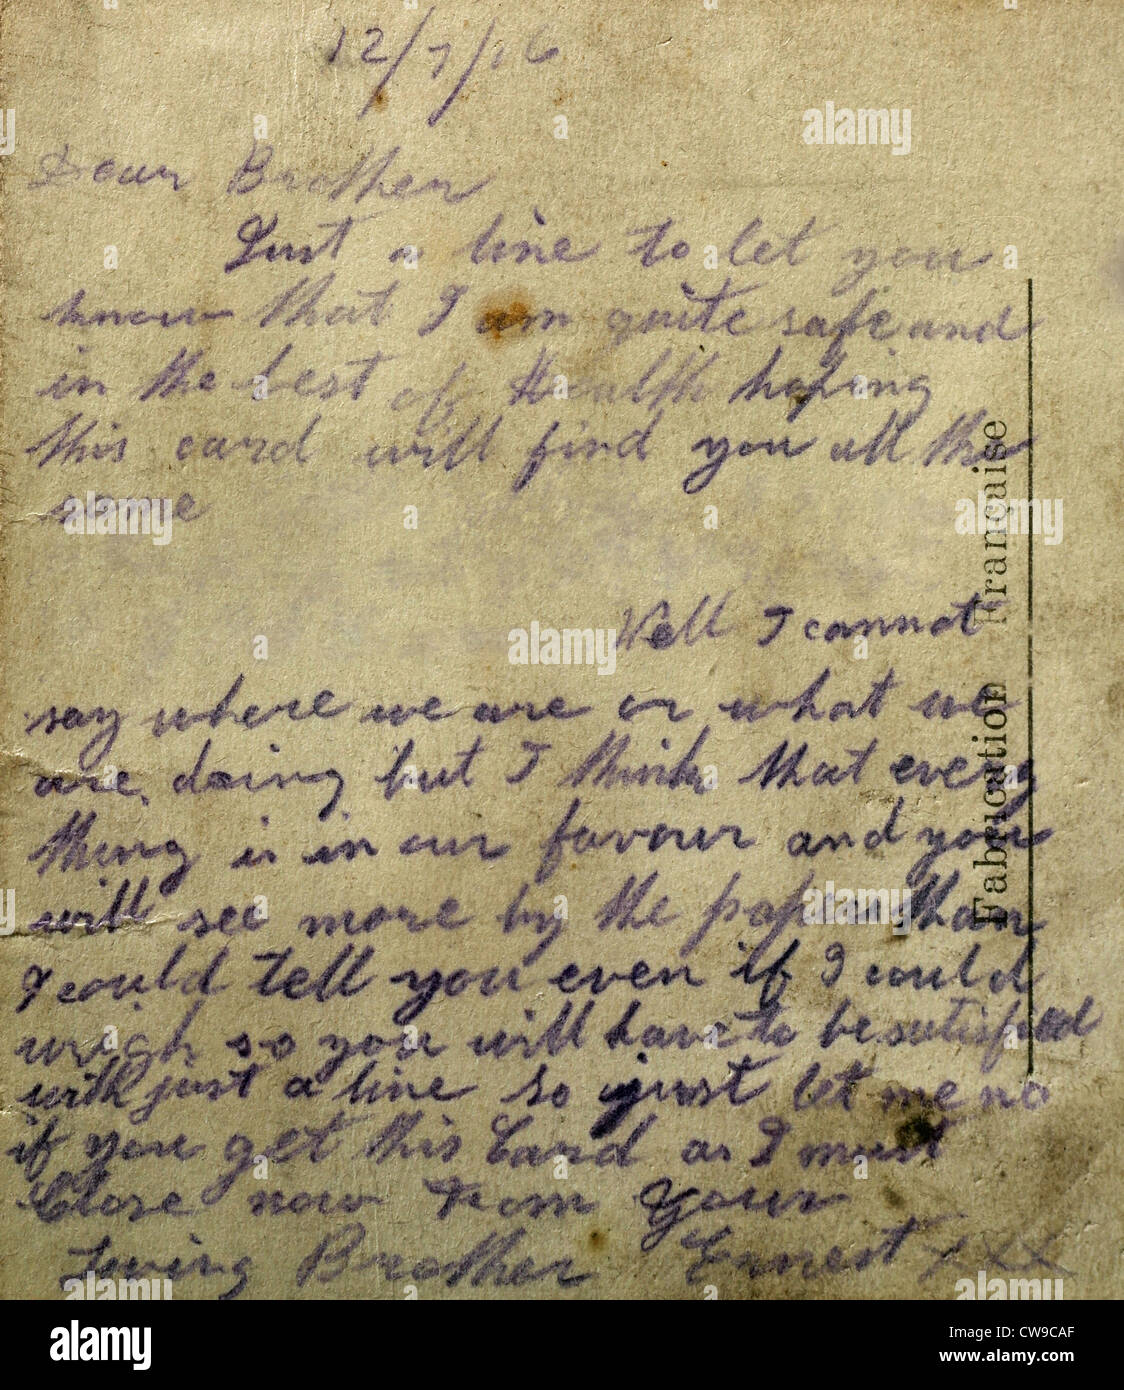 12/7/16
Dear Brother
Just a line to let you
know that I am quite safe and
in the best of Health hoping
this card will find you all the
same
Well I cannot
say where we are or what we
are doing but I think that every
thing is in our favour and you
will see more by the papers than
I could tell you even if I could
wrigh so you will have to be satisfied
with just a line so just let me no
if you get this Card as I must
Close now From Your
Loving Brother Ernest XXX
Fabrication Française
alamy
Image ID: CW9CAF
www.alamy.com